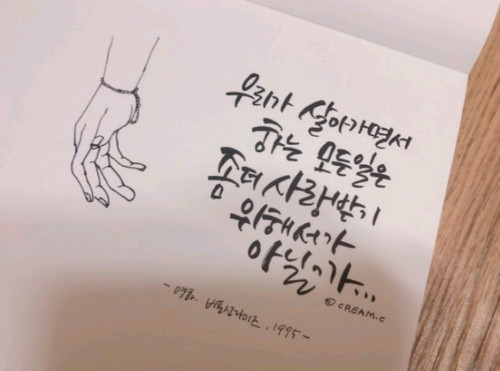 우리가 살아가면서
하는 모든일은
좀더 사랑받기
위해서가
아닐까...
© CREAM.C
- 영화. 비포선라이즈. 1995 -